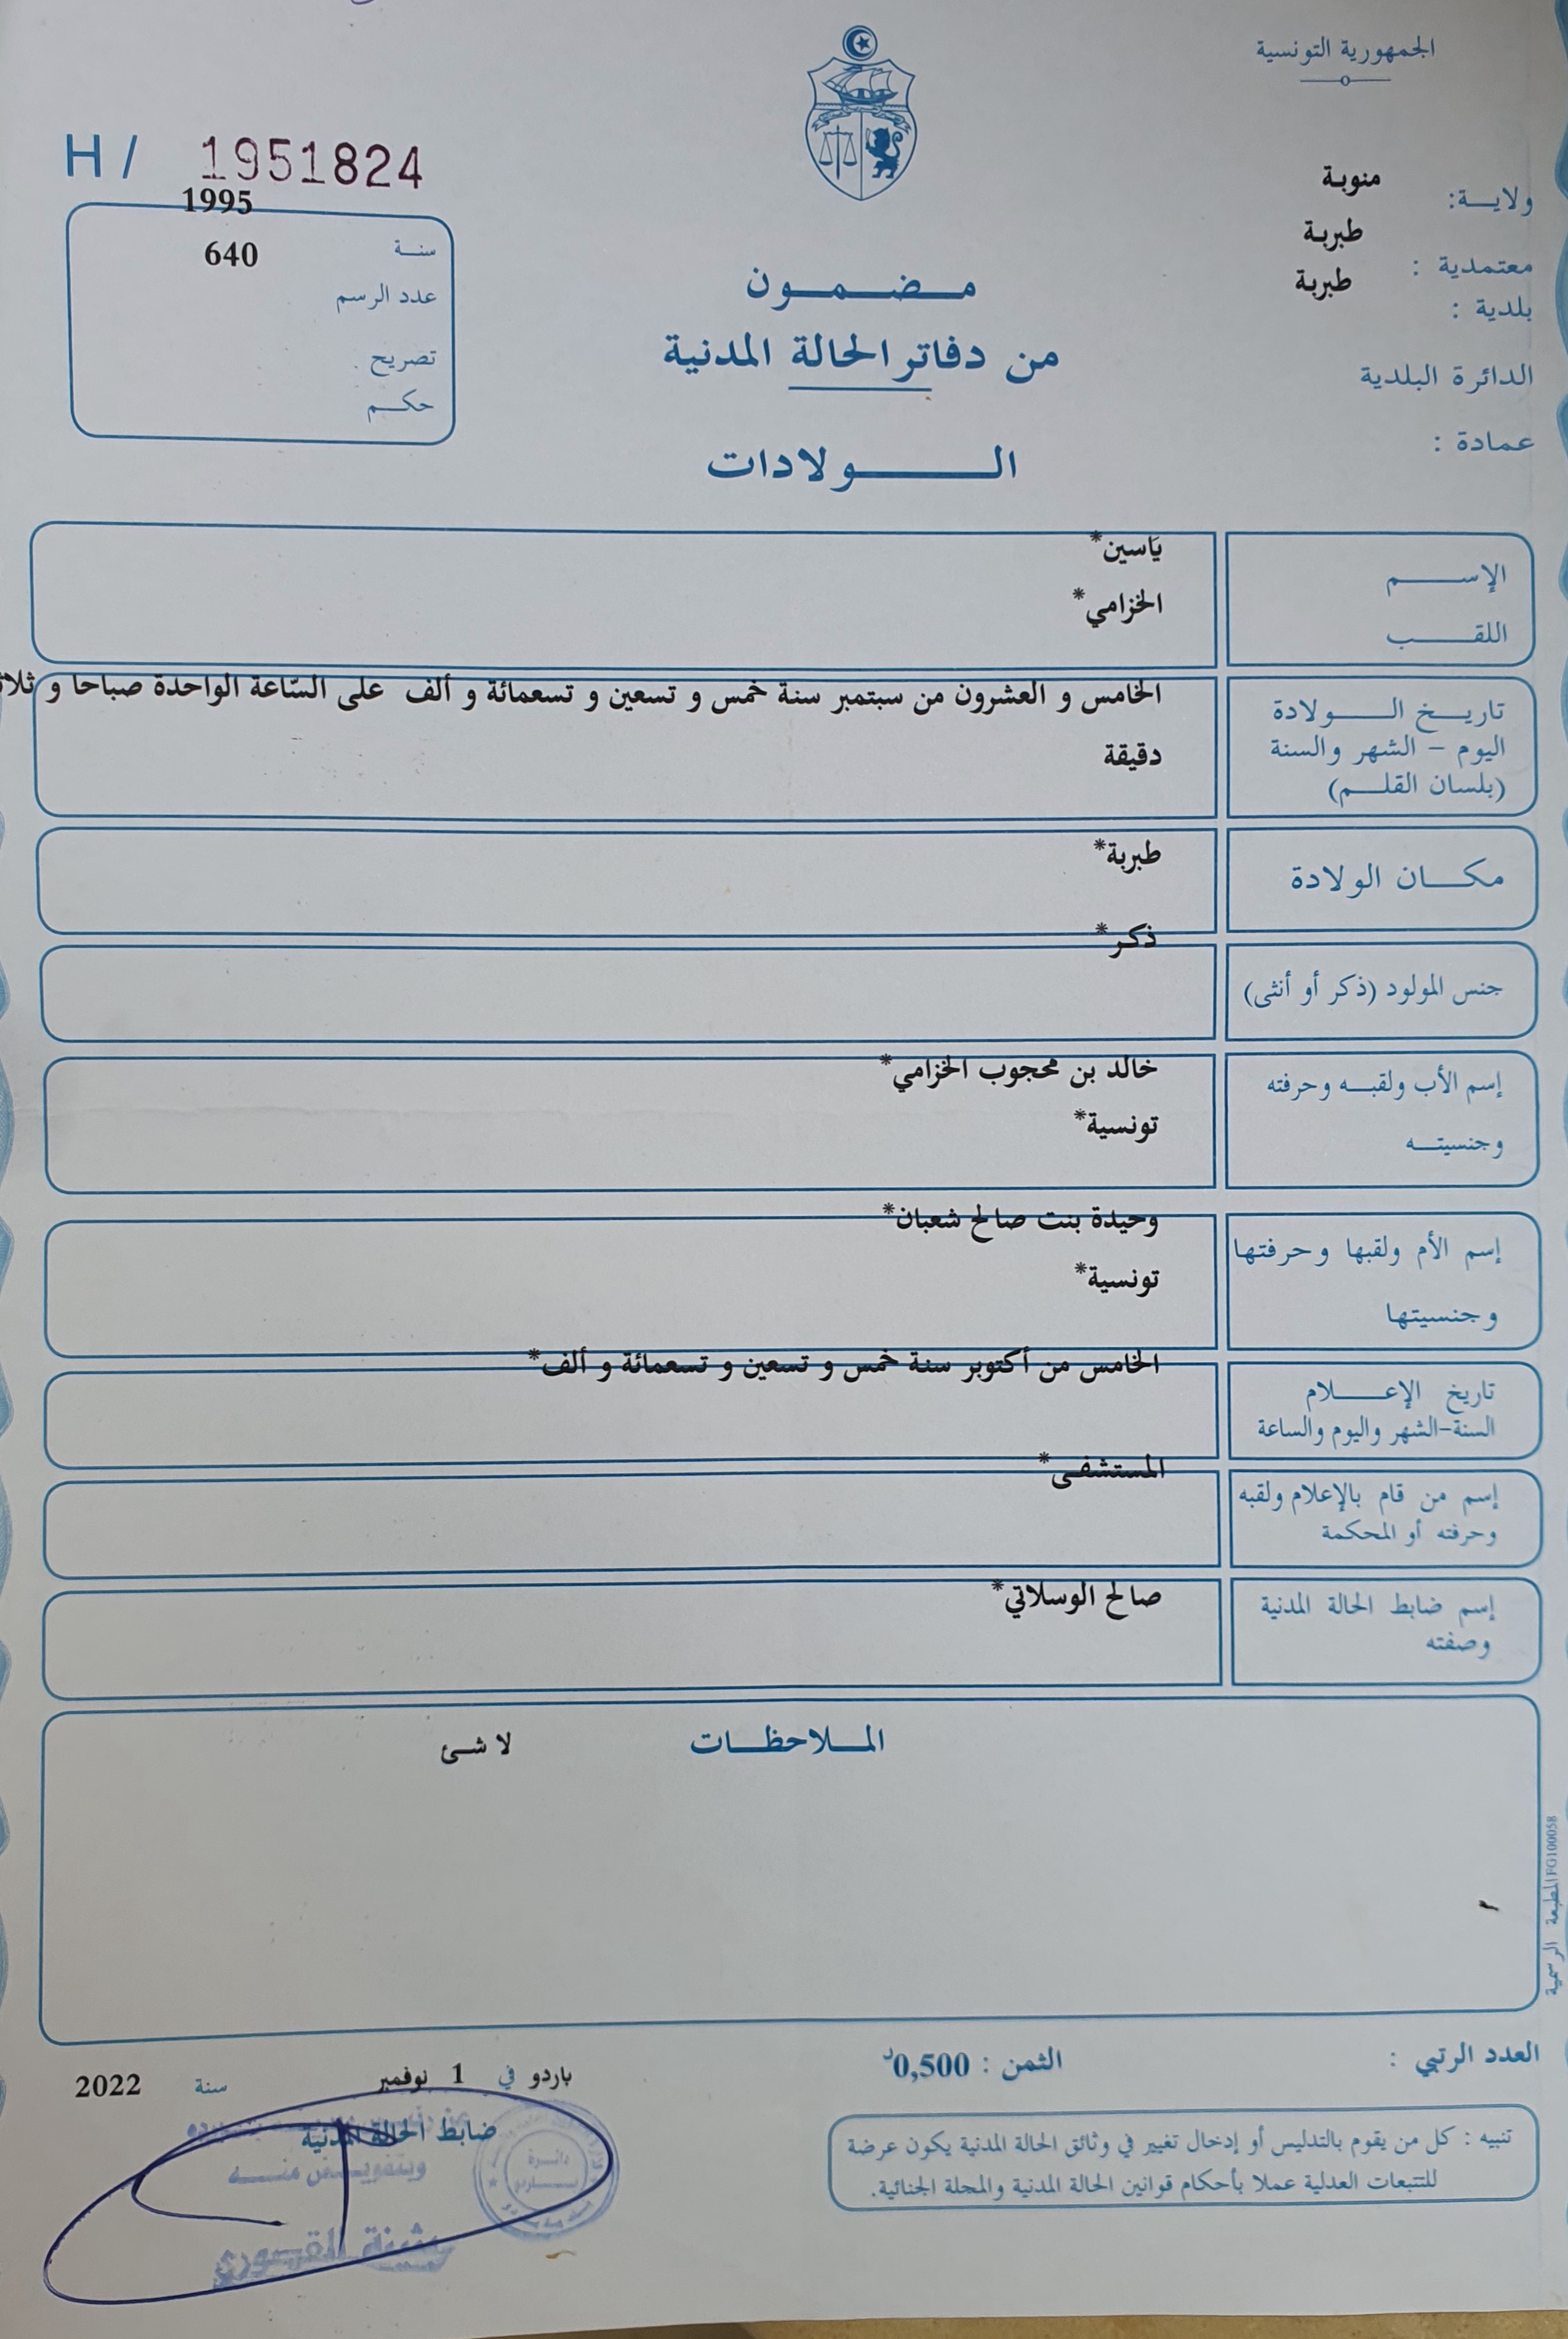 الجمهورية التونسية
ولاية: منوبة
معتمدية : طبربة
بلدية : طبربة
الدائرة البلدية
عمادة :
H / 1951824
سنة 1995
عدد الرسم 640
تصريح
حكم
مضمون
من دفاتر الحالة المدنية
الولادات
الإسم ياسين*
اللقب الخزامي*
تاريخ الولادة
اليوم - الشهر والسنة
(بلسان القلم)
الخامس و العشرون من سبتمبر سنة خمس و تسعين و تسعمائة و ألف على السّاعة الواحدة صباحا و
دقيقة
مكان الولادة
طبربة*
جنس المولود (ذكر أو أنثى)
ذكر*
إسم الأب ولقبه وحرفته
وجنسيته
خالد بن محجوب الخزامي*
تونسية*
إسم الأم ولقبها وحرفتها
وجنسيتها
وحيدة بنت صالح شعبان*
تونسية*
تاريخ الإعلام
السنة-الشهر واليوم والساعة
الخامس من أكتوبر سنة خمس و تسعين و تسعمائة و ألف*
إسم من قام بالإعلام ولقبه
وحرفته أو المحكمة
المستشفى*
إسم ضابط الحالة المدنية
وصفته
صالح الوسلاتي*
الملاحظات لا شئ
المطبعة الرسمية FG100058
العدد الرتبي :
الثمن : 0,500د
باردو في 1 نوفمبر سنة 2022
ضابط الحالة المدنية
تنبيه : كل من يقوم بالتدليس أو إدخال تغيير في وثائق الحالة المدنية يكون عرضة
للتتبعات العدلية عملا بأحكام قوانين الحالة المدنية والمجلة الجنائية.